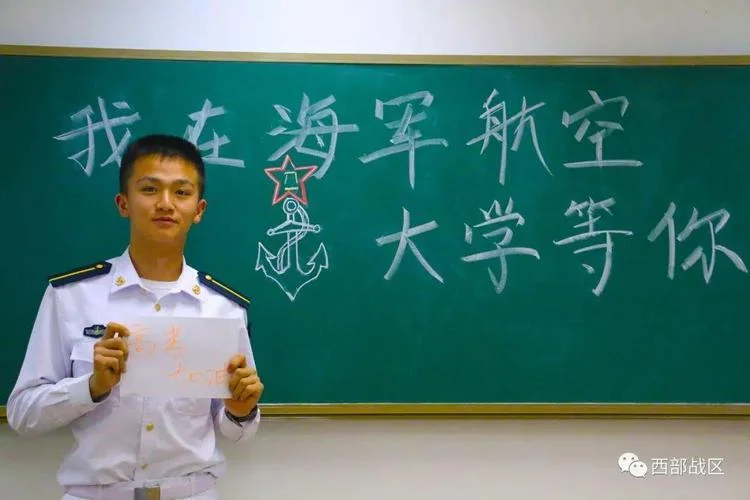 我在海军航空
大学等你
八一
高考
加油
西部战区